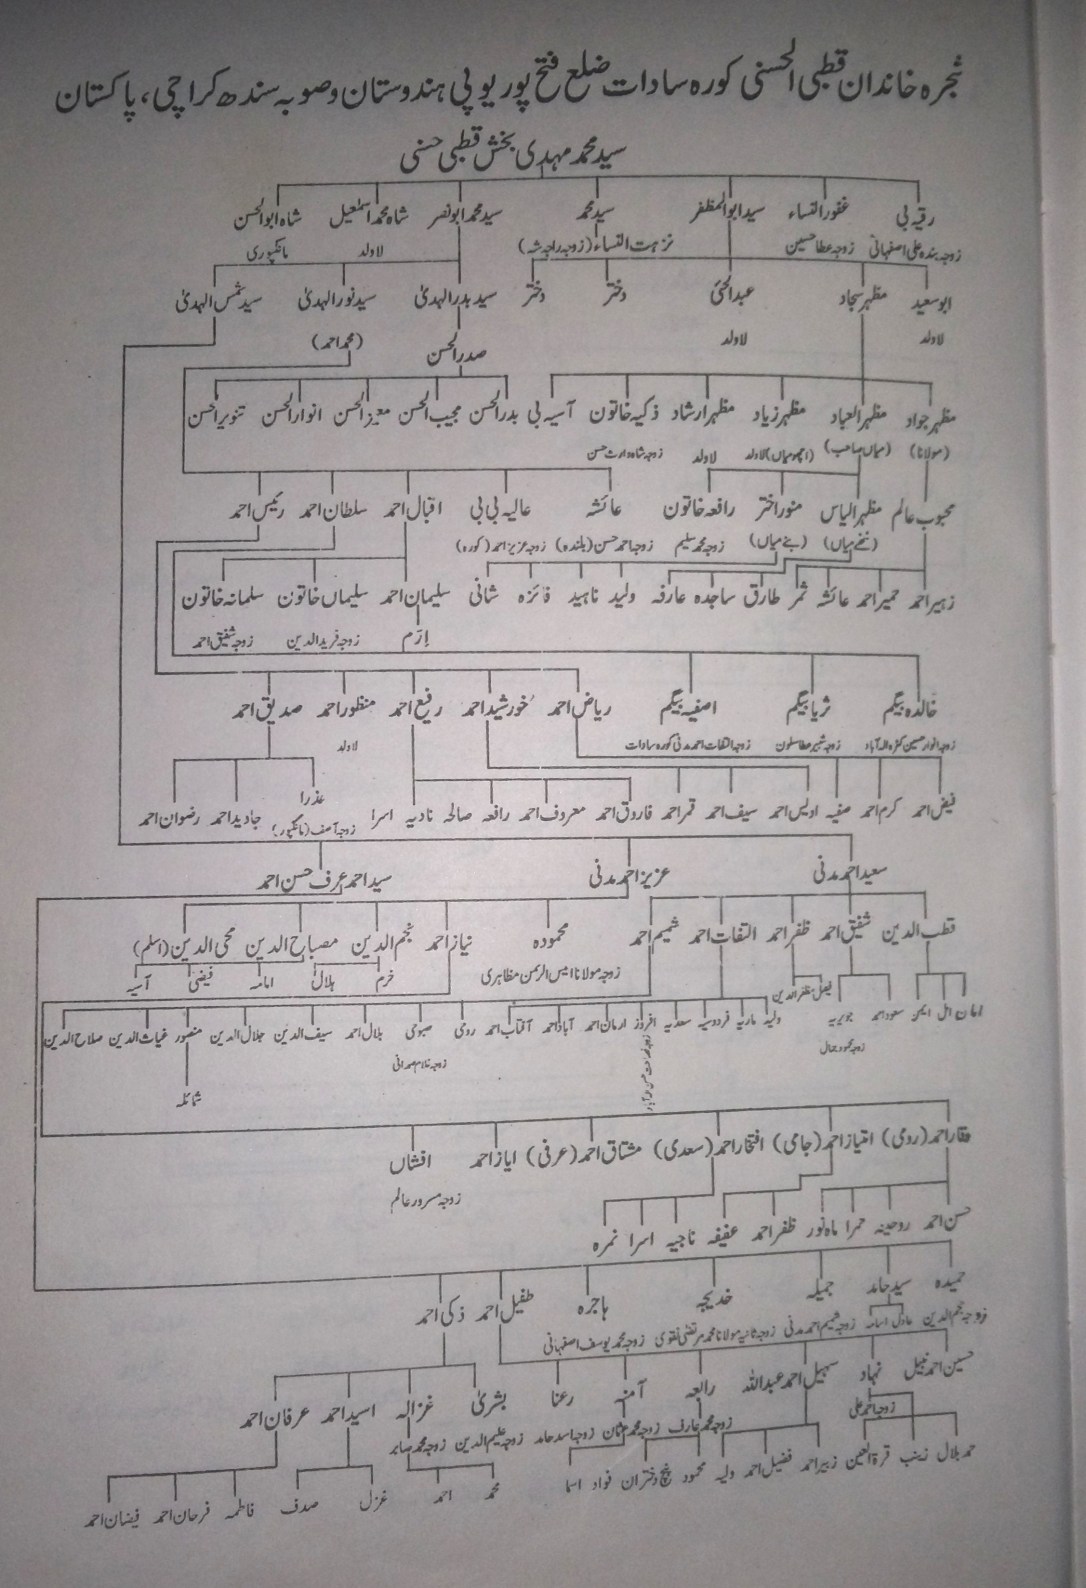 شجرہ خاندان قطبی الحسنی کورہ سادات ضلع فتح پور یوپی ہندوستان و صوبہ سندھ کراچی، پاکستان
سید محمد مہدی بخش قطبی حسنی
رقیہ بی غفور النساء سید ابوالمظفر سید محمد سید محمد ابونصر شاہ محمد اسمٰعیل شاہ ابوالحسن
زوجہ بندہ علی اصفہانی زوجہ عطا حسین نزہت النساء (زوجہ راجہ شہ) لاولد مانکپوری
ابوسعید مظہر سجاد عبدالحئی دختر دختر سید بدرالہدیٰ سید نورالہدیٰ سید شمس الہدیٰ
لاولد لاولد صدرالحسن (محمد احمد)
مظہر جواد مظہر العباد مظہر زیاد مظہر ارشاد ذکیہ خاتون آسیہ بی بدرالحسن مجیب الحسن معیز الحسن انوار الحسن تنویر الحسن
(مولانا) (میاں صاحب) (اچھو میاں) لاولد لاولد زوجہ شاہ وارث حسن
محبوب عالم مظہر الیاس منور اختر رافعہ خاتون عائشہ عالیہ بی بی اقبال احمد سلطان احمد رئیس احمد
(ننھے میاں) (بنے میاں) زوجہ محمد سلیم زوجہ احمد حسن (بلندہ) زوجہ عزیز احمد (کورہ)
زہیر احمد حمیر احمد عائشہ ثمر طارق ساجدہ عارفہ ولید ناہید فائزہ شانی سلیمان احمد سلیماں خاتون سلمانہ خاتون
اِرَم زوجہ فرید الدین زوجہ شفیق احمد
خالدہ بیگم ثریا بیگم اصفیہ بیگم ریاض احمد خورشید احمد رفیع احمد منظور احمد صدیق احمد
زوجہ انوار حسین کڑہ الہ آباد زوجہ شبیر عطا سلون زوجہ التفات احمد مدنی کورہ سادات لاولد
فیض احمد کرم احمد صفیہ اویس احمد سیف احمد قمر احمد فاروق احمد معروف احمد رافعہ صالحہ نادیہ اسرا عذرا جاوید احمد رضوان احمد
زوجہ آصف (مانکپور)
سعید احمد مدنی عزیز احمد مدنی سید احمد عرف حسن احمد
قطب الدین شفیق احمد ظفر احمد التفات احمد شمیم احمد محمودہ نیاز احمد نجم الدین مصباح الدین محی الدین (اسلم)
زوجہ مولانا انیس الرحمن مظاہری خرم ہلال امامہ فیضی آسیہ
امان امل ایمن سعود احمد جویریہ فیصل مظفر الدین ولیہ ماریہ فردوسیہ سعدیہ افروز ارمان احمد آباد احمد آفتاب احمد رومی صبوحی بلال احمد سیف الدین جلال الدین منصور غیاث الدین صلاح الدین
زوجہ محمود جمال زوجہ غلام صمدانی
شمائلہ
وقار احمد (رومی) امتیاز احمد (جامی) افتخار احمد (سعدی) مشتاق احمد (عرفی) ایاز احمد افشاں
زوجہ مسرور عالم
حسن احمد روحینہ حمرا ماہ نور ظفر احمد عفیفہ ناجیہ اسرا نمرہ
حمیدہ سید حامد جمیلہ خدیجہ ہاجرہ طفیل احمد ذکی احمد
زوجہ نجم الدین عادل اسامہ زوجہ شمیم احمد مدنی زوجہ ثانیہ مولانا محمد مرتضیٰ نقوی زوجہ محمد یوسف اصفہانی
حسین احمد نبیل نہاد سہیل احمد عبداللہ رابعہ آمنہ رعنا بشریٰ غزالہ اسید احمد عرفان احمد
زوجہ احمد علی زوجہ محمد عارف زوجہ محمد عثمان زوجہ اسد حامد زوجہ علیم الدین زوجہ محمد صابر
حمد بلال زینب قرۃ العین زبیر احمد فضیل احمد ولیہ محمود پنج دختران فواد اسما محمد احمد غزل صدف فاطمہ فرحان احمد فیضان احمد